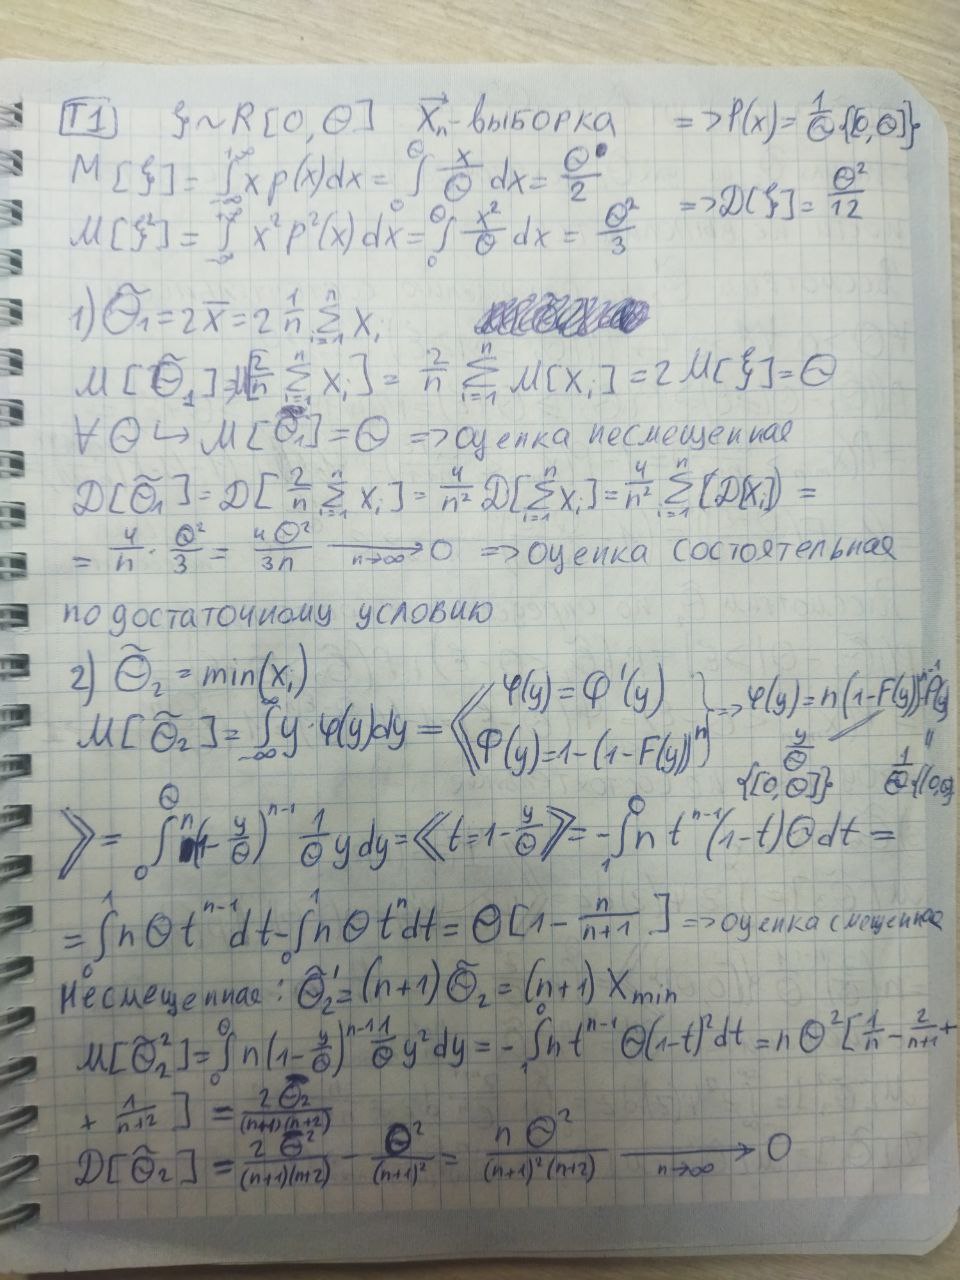 T1 ξ ~ R[0, Θ] X⃗ₙ - выборка => P(x) = 1/Θ {[0, Θ]}
M[ξ] = ∫_{-∞}^{+∞} x p(x)dx = ∫_0^Θ x/Θ dx = Θ/2
M[ξ²] = ∫_{-∞}^{+∞} x² p²(x) dx = ∫_0^Θ x²/Θ dx = Θ²/3 => D[ξ] = Θ²/12
1) Θ̃₁ = 2X̄ = 2 1/n Σ_{i=1}^n Xᵢ
M[Θ̃₁] = M[2/n Σ_{i=1}^n Xᵢ] = 2/n Σ_{i=1}^n M[Xᵢ] = 2M[ξ] = Θ
∀Θ ↪ M[Θ̃₁] = Θ => оценка несмещенная
D[Θ̃₁] = D[2/n Σ_{i=1}^n Xᵢ] = 4/n² D[Σ_{i=1}^n Xᵢ] = 4/n² Σ_{i=1}^n (D[Xᵢ]) =
= 4/n · Θ²/3 = 4Θ²/3n →_{n→∞} 0 => оценка состоятельная
по достаточному условию
2) Θ̃₂ = min(Xᵢ)
M[Θ̃₂] = ∫_{-∞}^{∞} y·φ(y)dy = ⟪ φ(y) = Φ'(y)
Φ(y) = 1-(1-F(y))ⁿ } => φ(y) = n(1-F(y))^{n-1} P(y)
y/Θ {[0, Θ]} " 1/Θ {[0, Θ]
⟫ = ∫_0^Θ n(1-y/Θ)^{n-1} 1/Θ y dy = ⟪t = 1-y/Θ⟫ = -∫_1^0 n t^{n-1} (1-t)Θ dt =
= ∫_0^1 nΘt^{n-1} dt - ∫_0^1 nΘtⁿ dt = Θ[1 - n/(n+1)] => оценка смещенная
Несмещенная: Θ̃₂' = (n+1)Θ̃₂ = (n+1) X_min
M[Θ̃₂²] = ∫_0^Θ n(1-y/Θ)^{n-1} 1/Θ y² dy = -∫_1^0 n t^{n-1} Θ(1-t)² dt = nΘ²[1/n - 2/(n+1) +
+ 1/(n+2)] = 2Θ₂/((n+1)(n+2))
D[Θ̃₂] = 2Θ²/((n+1)(n+2)) - Θ²/(n+1)² = nΘ²/((n+1)²(n+2)) →_{n→∞} 0